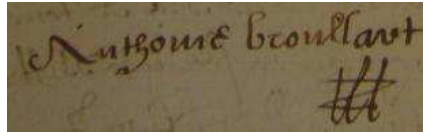 Anthoine broullart